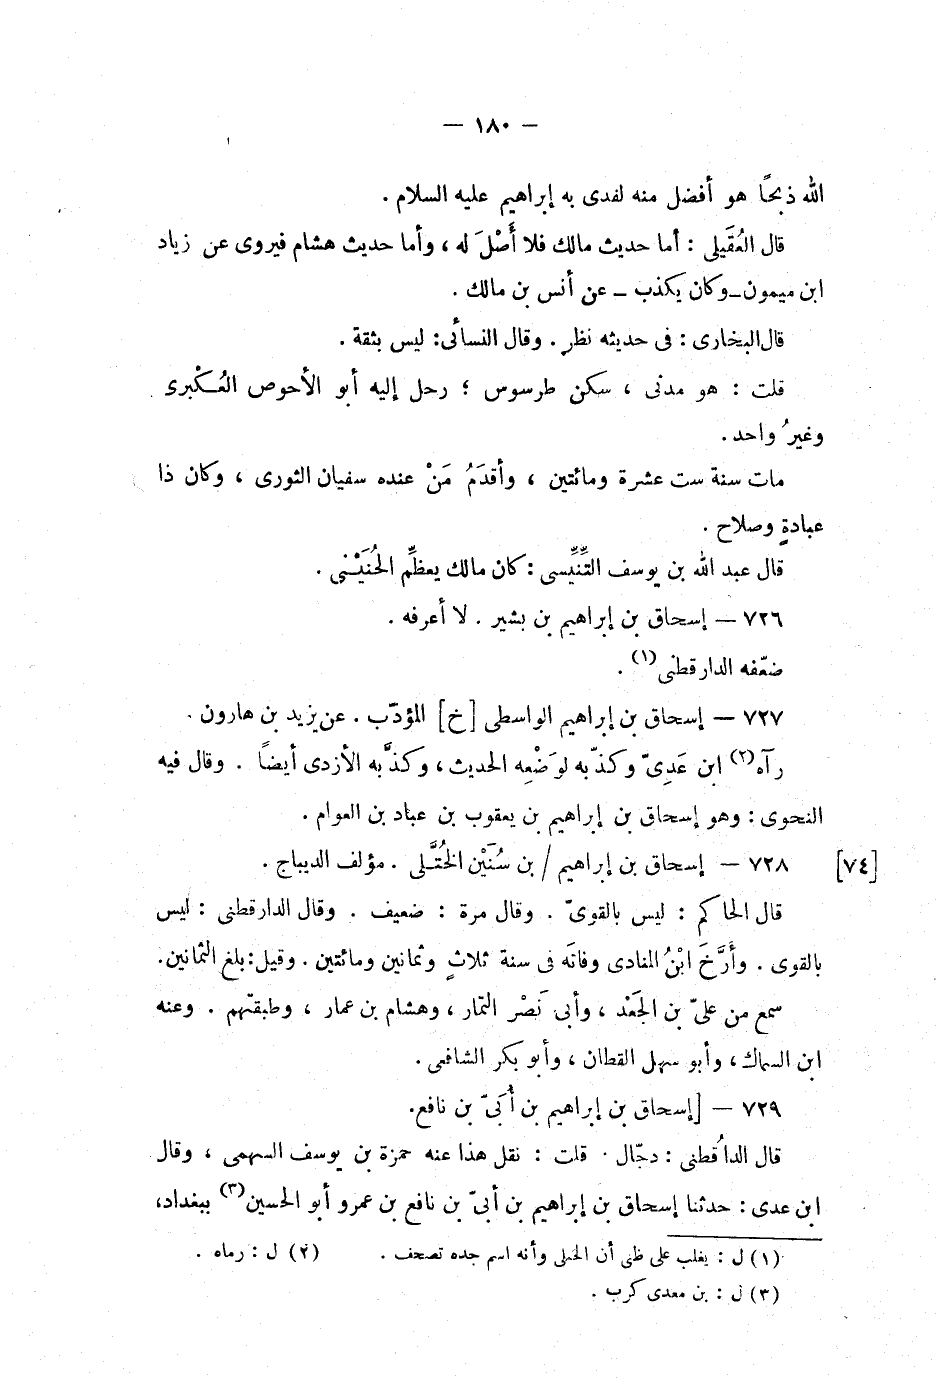 — ١٨٠ —
الله ذبحًا هو أفضل منه لفدى به إبراهيم عليه السلام .
قال العُقَيلى : أما حديث مالك فلا أَصْلَ له ، وأما حديث هشام فيروى عن زياد
ابن ميمون ـ وكان يكذب ـ عن أنس بن مالك .
قال البخارى : فى حديثه نظر . وقال النسائى : ليس بثقة .
قلت : هو مدنى ، سكن طرسوس ؛ رحل إليه أبو الأحوص العُكْبرى
وغيرُ واحد .
مات سنة ست عشرة ومائتين ، وأقدَمُ مَنْ عنده سفيان الثورى ، وكان ذا
عبادةٍ وصلاح .
قال عبد الله بن يوسف التِّنِّيسى : كان مالك يعظِّم الحُنَيْنى .
٧٢٦ — إسحاق بن إبراهيم بن بشير . لا أعرفه .
ضعّفه الدارقطنى (١) .
٧٢٧ — إسحاق بن إبراهيم الواسطى [خ] المؤدّب . عن يزيد بن هارون .
رآه (٢) ابن عَدِىّ وكذّبه لوَضْعِه الحديث ، وكذَّبه الأزدى أيضاً . وقال فيه
النحوى : وهو إسحاق بن إبراهيم بن يعقوب بن عباد بن العوام .
[٧٤] ٧٢٨ — إسحاق بن إبراهيم / بن سُنَيْن الخُتَّلى . مؤلف الديباج .
قال الحاكم : ليس بالقوىّ . وقال مرة : ضعيف . وقال الدارقطنى : ليس
بالقوى . وأَرَّخَ ابْنُ المنادى وفاتَه فى سنة ثلاثٍ وثمانين ومائتين . وقيل : بلغ الثمانين .
سمع من علىّ بن الجَعْد ، وأبى نَصْر التمار ، وهشام بن عمار ، وطبقتهم . وعنه
ابن السماك ، وأبو سهل القطان ، وأبو بكر الشافعى .
٧٢٩ — [إسحاق بن إبراهيم بن أُبَىّ بن نافع .
قال الداُقطنى : دجّال . قلت : نقل هذا عنه حمزة بن يوسف السهمى ، وقال
ابن عدى : حدثنا إسحاق بن إبراهيم بن أبىّ بن نافع بن عمرو أبو الحسين (٣) ببغداد ،
(١) ل : يغلب على ظنى أن الختلى وأنه اسم جده تصحف . (٢) ل : رماه .
(٣) ل : بن معدى كرب .